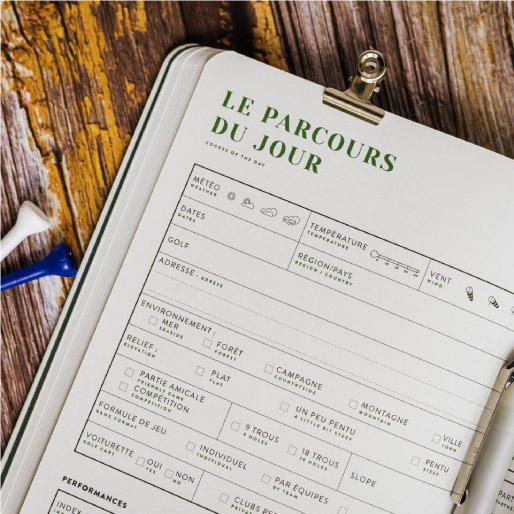 LE PARCOURS
DU JOUR
COURSE OF THE DAY
MÉTÉO
WEATHER
TEMPÉRATURE
TEMPERATURE
VENT
WIND
DATES
DATES
RÉGION/PAYS
REGION / COUNTRY
GOLF
ADRESSE - ADRESS
ENVIRONNEMENT :
MER
SEASIDE
FORÊT
CAMPAGNE
COUNTRYSIDE
MONTAGNE
MOUNTAIN
VILLE
TOWN
RELIEF :
ELEVATION
PLAT
FLAT
UN PEU PENTU
A LITTLE BIT STEEP
PENTU
STEEP
PARTIE AMICALE
FRIENDLY GAME
COMPÉTITION
COMPETITION
9 TROUS
9 HOLES
18 TROUS
18 HOLES
SLOPE
FORMULE DE JEU
GAME FORMAT
INDIVIDUEL
INDIVIDUAL
PAR ÉQUIPES
BY TEAM
VOITURETTE
GOLF CART
OUI
YES
NON
NO
PERFORMANCES
INDEX